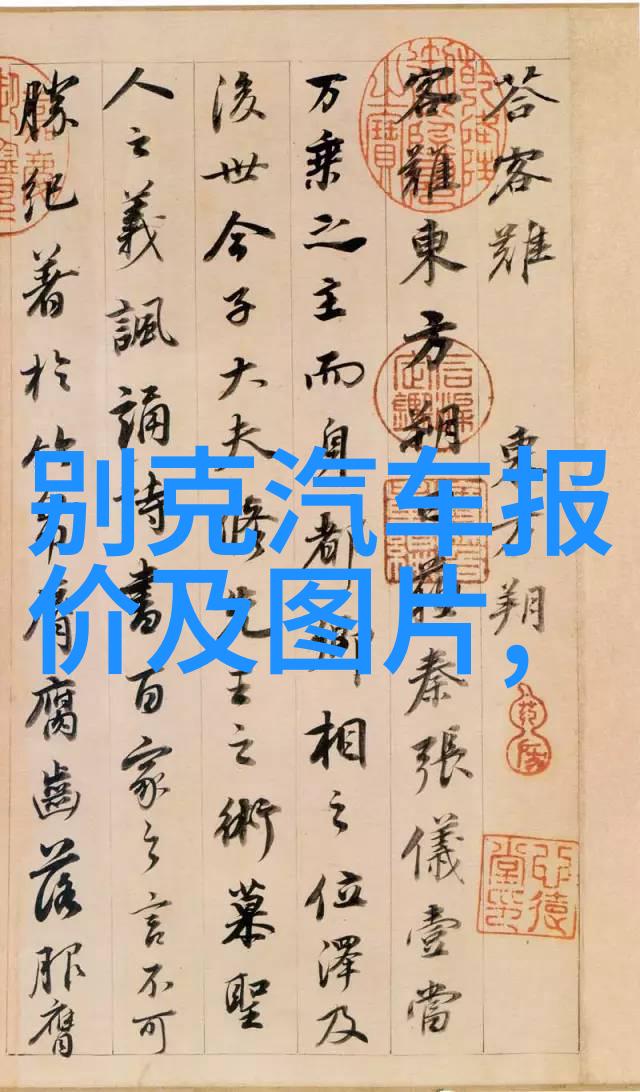 荅客難 東方朔
客難東方朔曰蘇秦張儀壹當
万乘之主而身都卿相之位澤及
後世今子大夫脩先王之術慕聖
人之義諷誦詩書百家之言不可
勝紀著於竹帛脣腐齒落服膺
别克汽车报
价及图片，